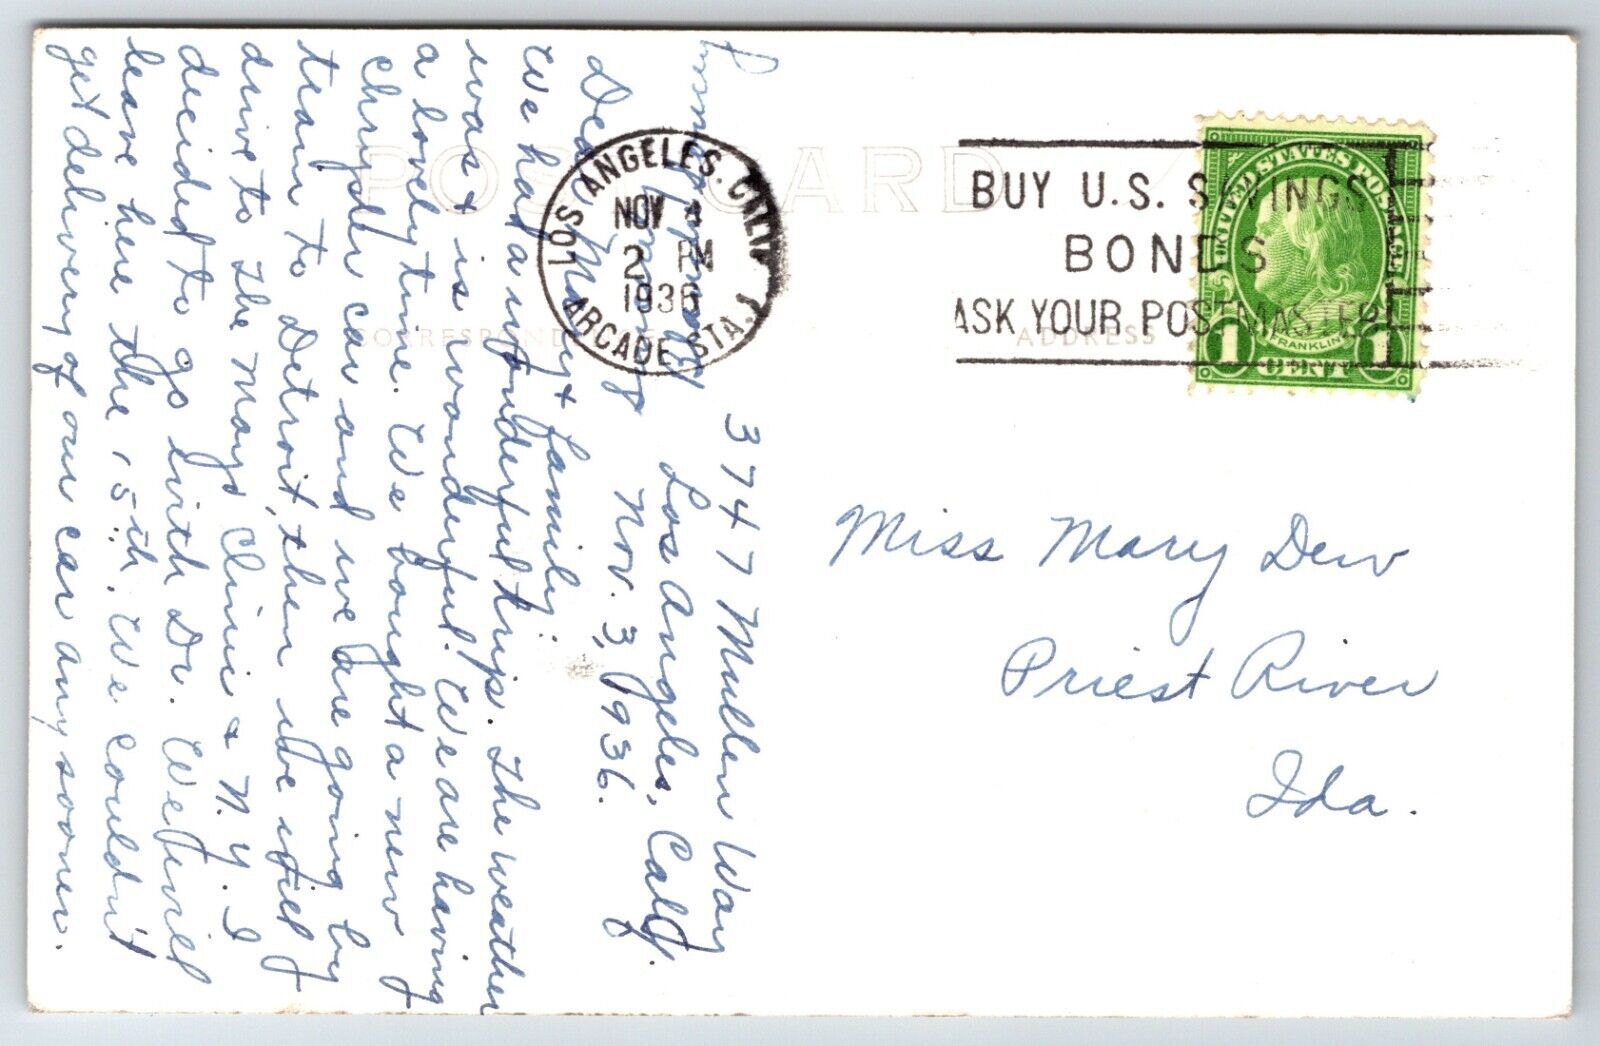 POST CARD
CORRESPONDENCE
ADDRESS
LOS ANGELES, CALIF.
NOV 4
2 PM
1936
ARCADE STA. 1
BUY U.S. SAVINGS
BONDS
ASK YOUR POSTMASTER
UNITED STATES POSTAGE
FRANKLIN
1 CENT 1
Miss Mary Dew
Priest River
Ida.
3747 Mullen Way
Los Angeles, Calif.
Nov. 3, 1936.
Dear Mary & family:
We had a wonderful trip. The weather
was & is wonderful. We are having
a lovely time. We bought a new
chrysler car and we are going by
train to Detroit, then we will
drive to the Mayo Clinic & N.Y. I
decided to go with Dr. We will
leave here the 15th. We couldn't
get delivery of our car any sooner.